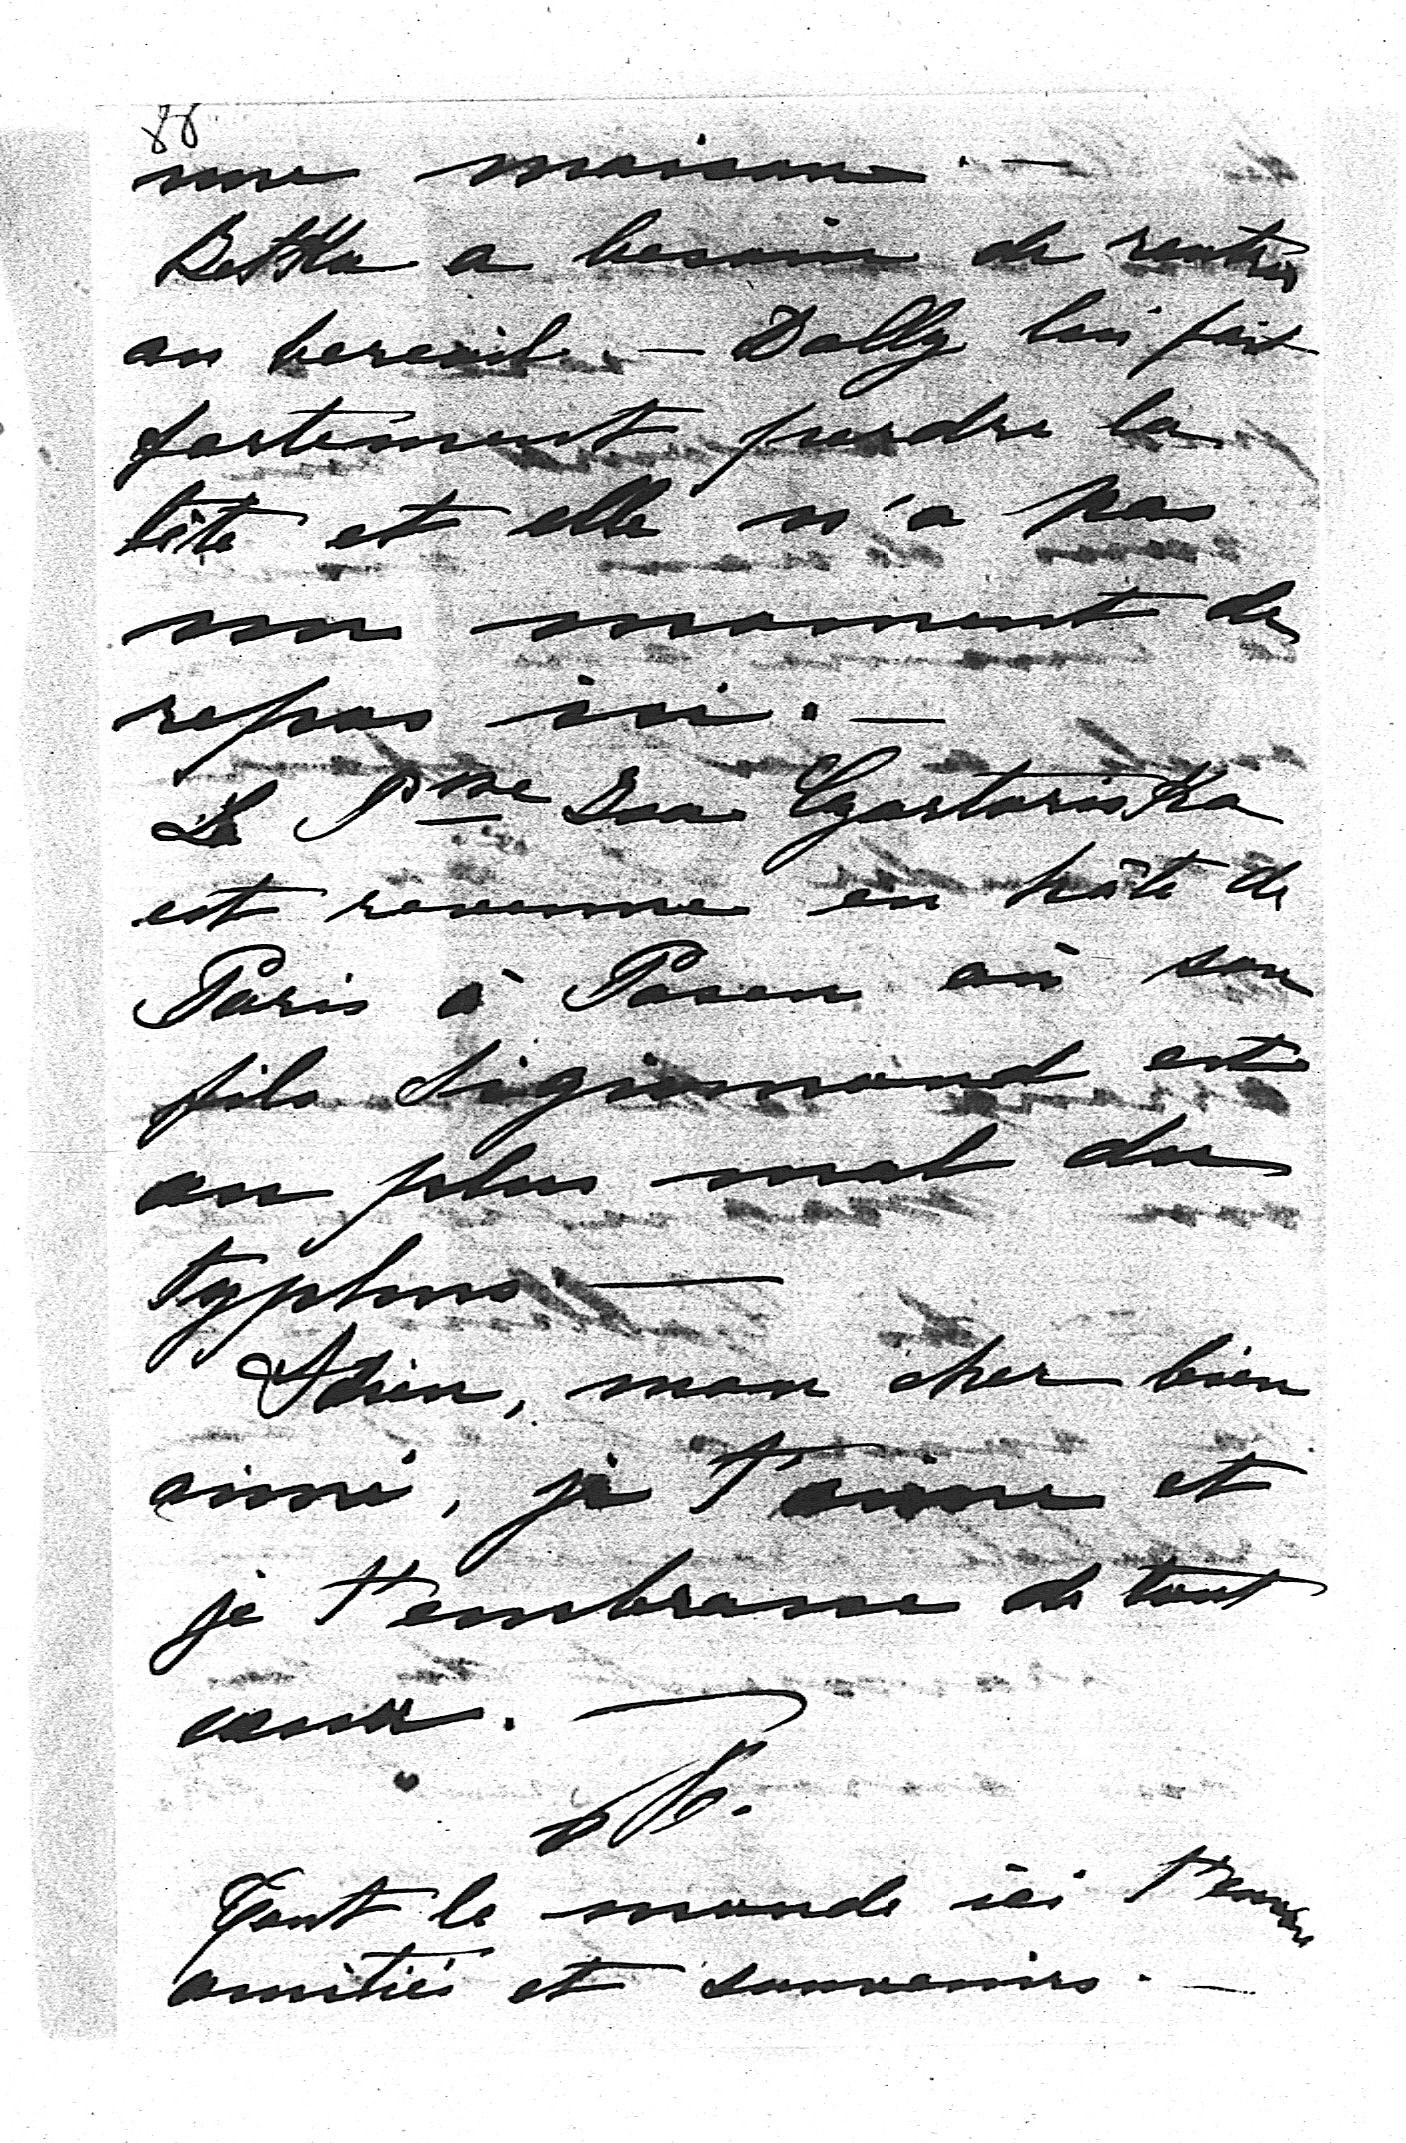 88
une maison. —
Betka a besoin de rentrer
au bercail. — Dolly lui fait
fortement perdre la
tête et elle n'a pas
un moment de
repos ici. —
La Psse Iza Czartoriska
est revenue en hâte de
Paris à Posen où son
fils Sigismond est
au plus mal du
typhus. —
Adieu, mon cher bien
aimé, je t'aime et
je t'embrasse de tout
cœur. —
Tout le monde ici t'envoie
amitiés et souvenirs. —